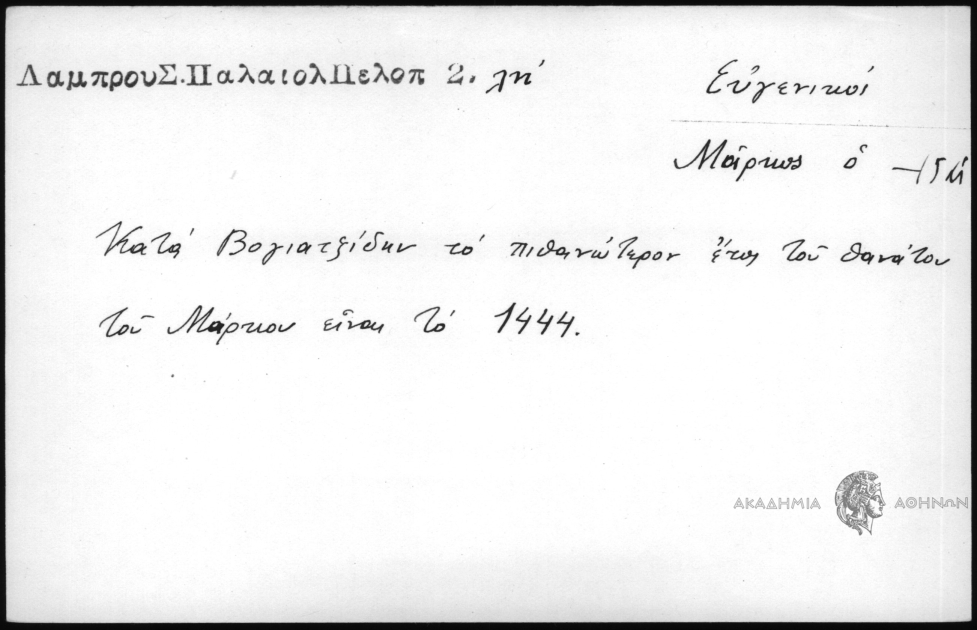 ΛαμπρουΣ.ΠαλαιολΠελοπ 2. λη'
Εὐγενικοί
Μάρκος ὁ
Κατά Βογιατζίδην τό πιθανώτερον ἔτος τοῦ θανάτου
τοῦ Μάρκου εἶναι τό 1444.
ΑΚΑΔΗΜΙΑ ΑΘΗΝΩΝ